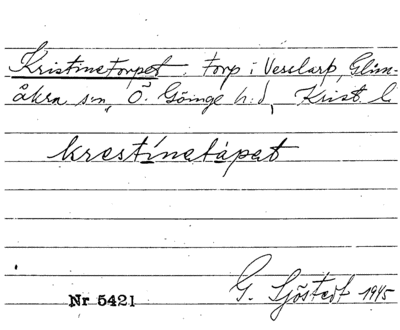 Kristinetorpet. torp i Verslarp, Glim-
åkra sn, Ö. Göinge h:d, Krist. l.
krestinetápet
G. Sjöstedt 1945
Nr 5421